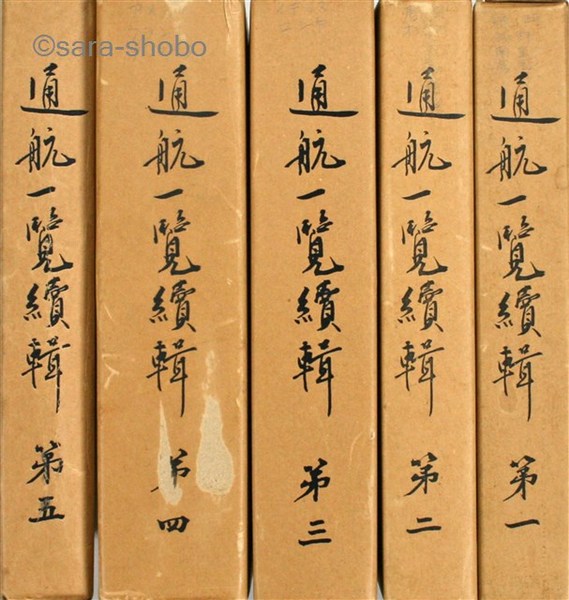 ©sara-shobo
通航一覧續輯 第一
通航一覧續輯 第二
通航一覧續輯 第三
通航一覧續輯 第四
通航一覧續輯 第五